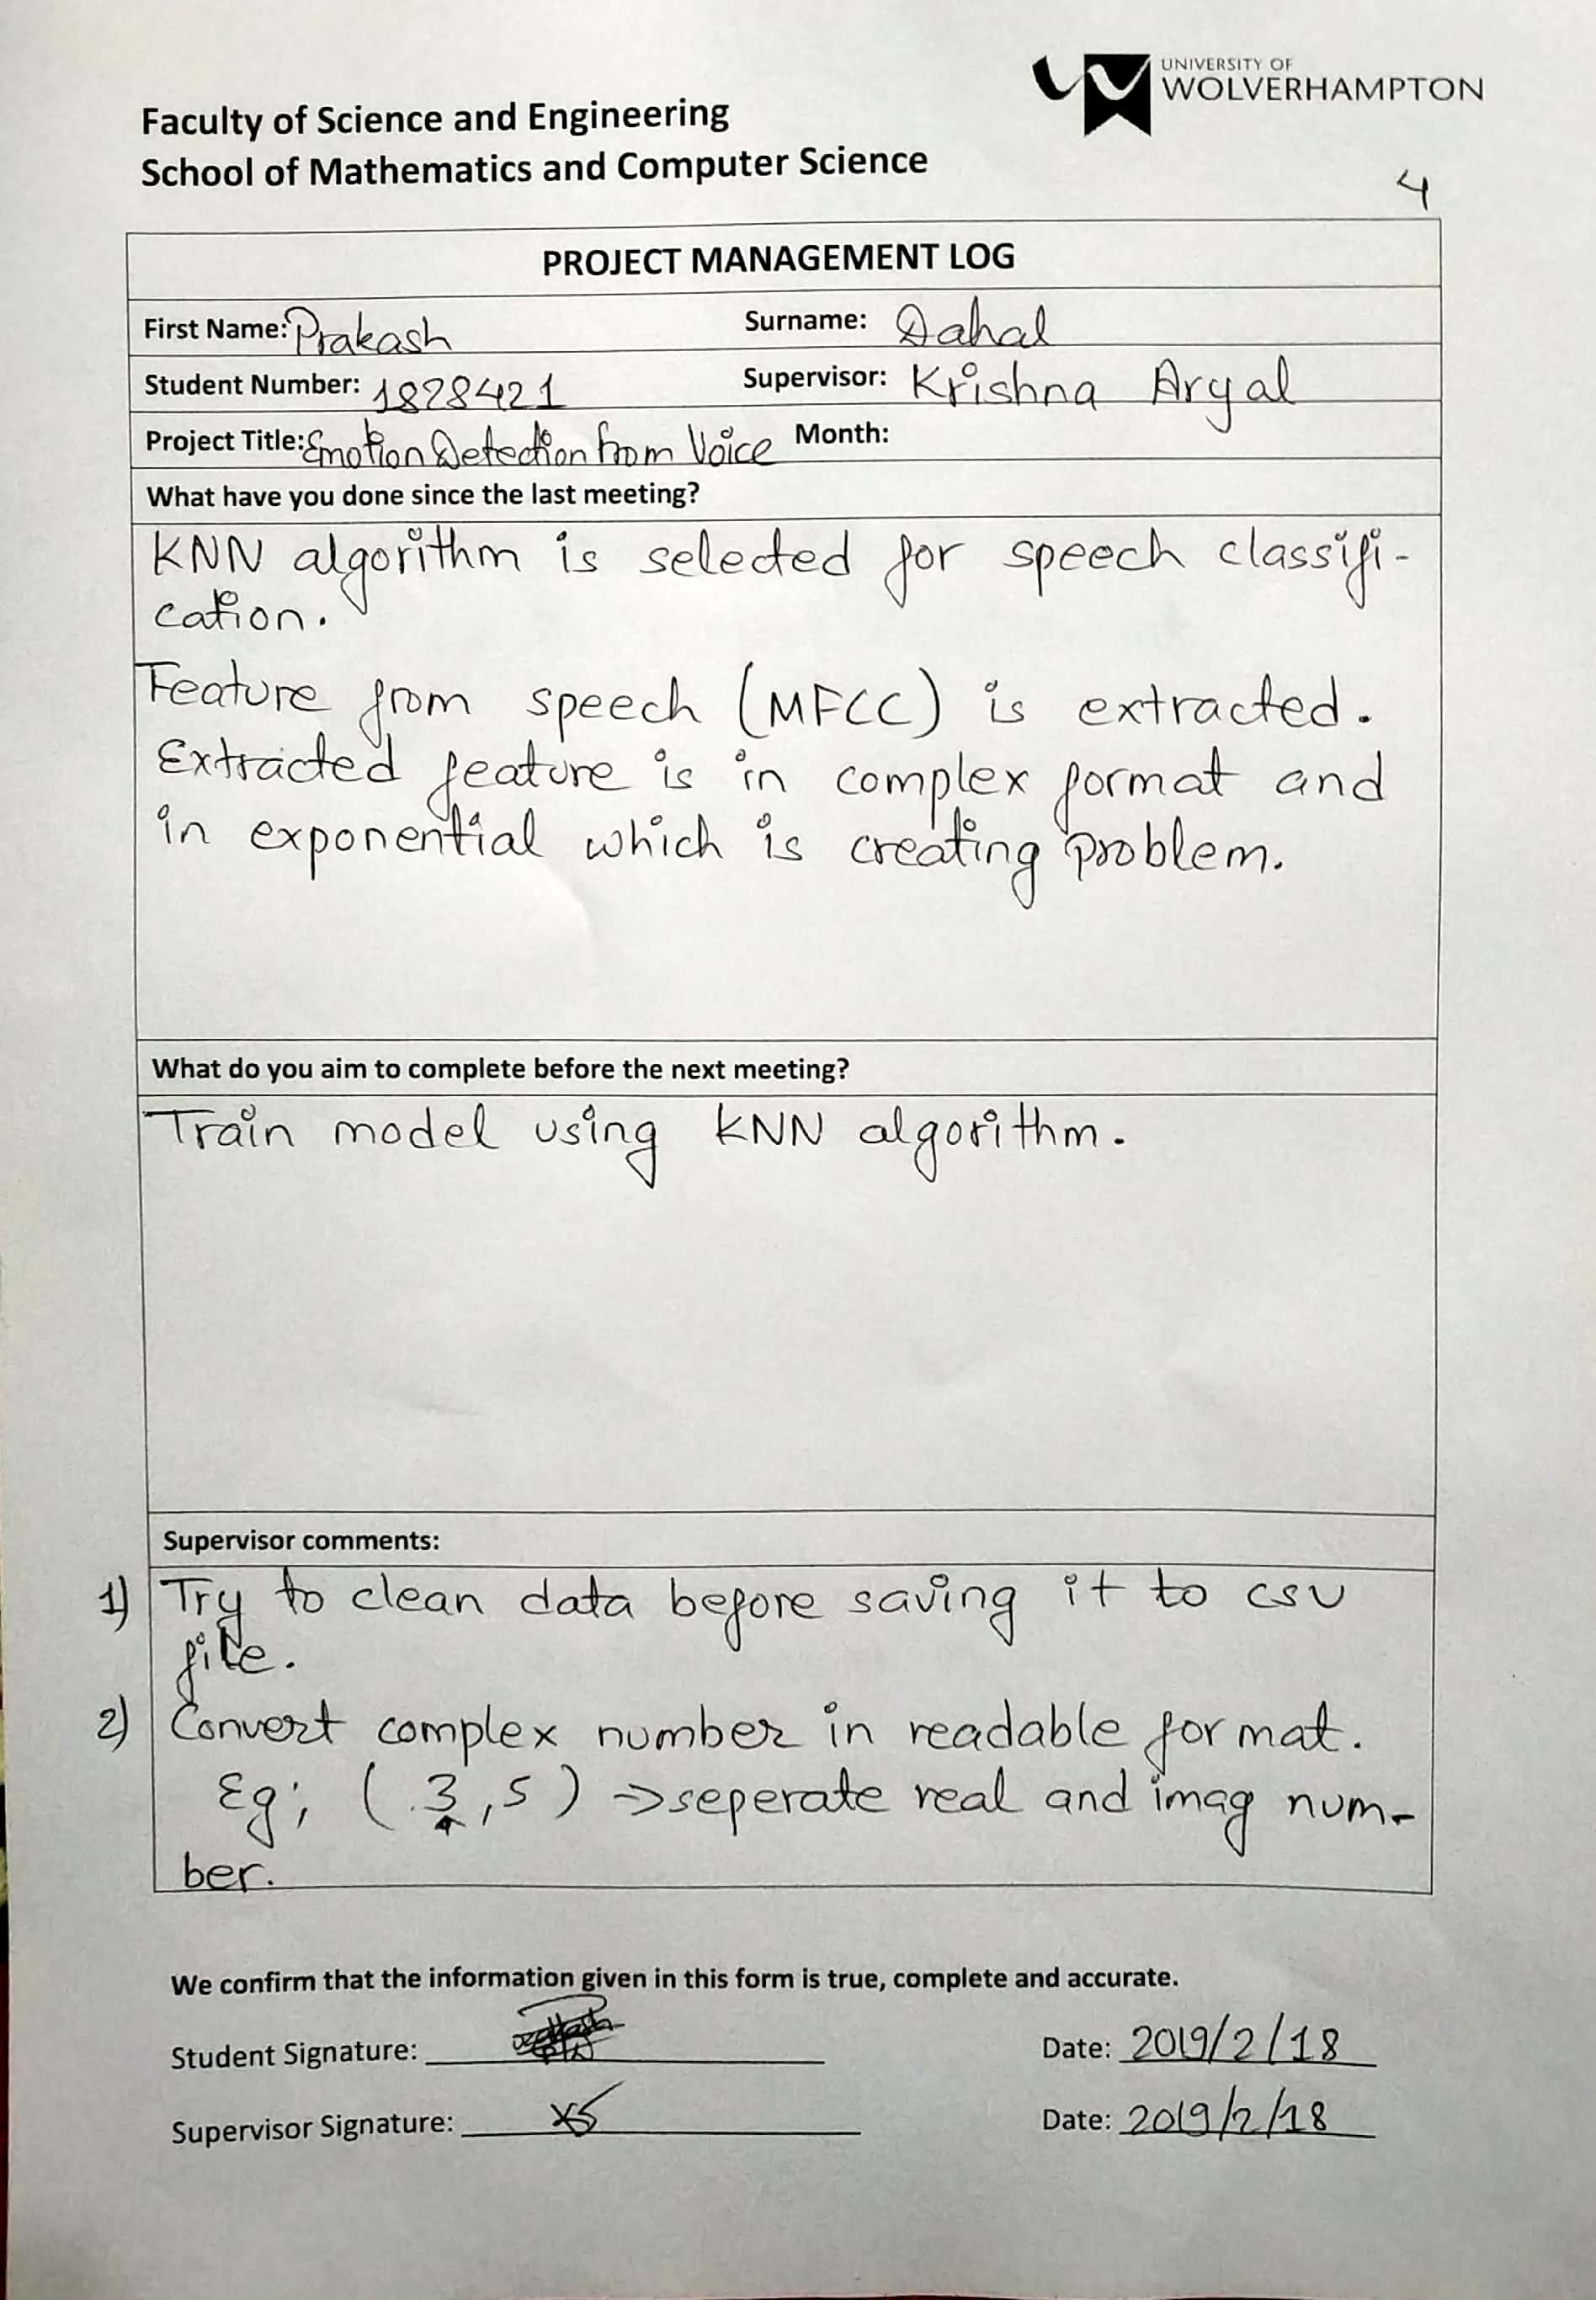 UNIVERSITY OF
WOLVERHAMPTON
Faculty of Science and Engineering
School of Mathematics and Computer Science
4
PROJECT MANAGEMENT LOG
First Name: Prakash Surname: Dahal
Student Number: 1828421 Supervisor: Krishna Aryal
Project Title: Emotion Detection from Voice Month:
What have you done since the last meeting?
KNN algorithm is selected for speech classifi-
cation.
Feature from speech (MFCC) is extracted.
Extracted feature is in complex format and
in exponential which is creating problem.
What do you aim to complete before the next meeting?
Train model using KNN algorithm.
Supervisor comments:
1) Try to clean data before saving it to csv
file.
2) Convert complex number in readable format.
Eg; (.3,5) → seperate real and imag num-
ber.
We confirm that the information given in this form is true, complete and accurate.
Student Signature: Date: 2019/2/18
Supervisor Signature: Date: 2019/2/18